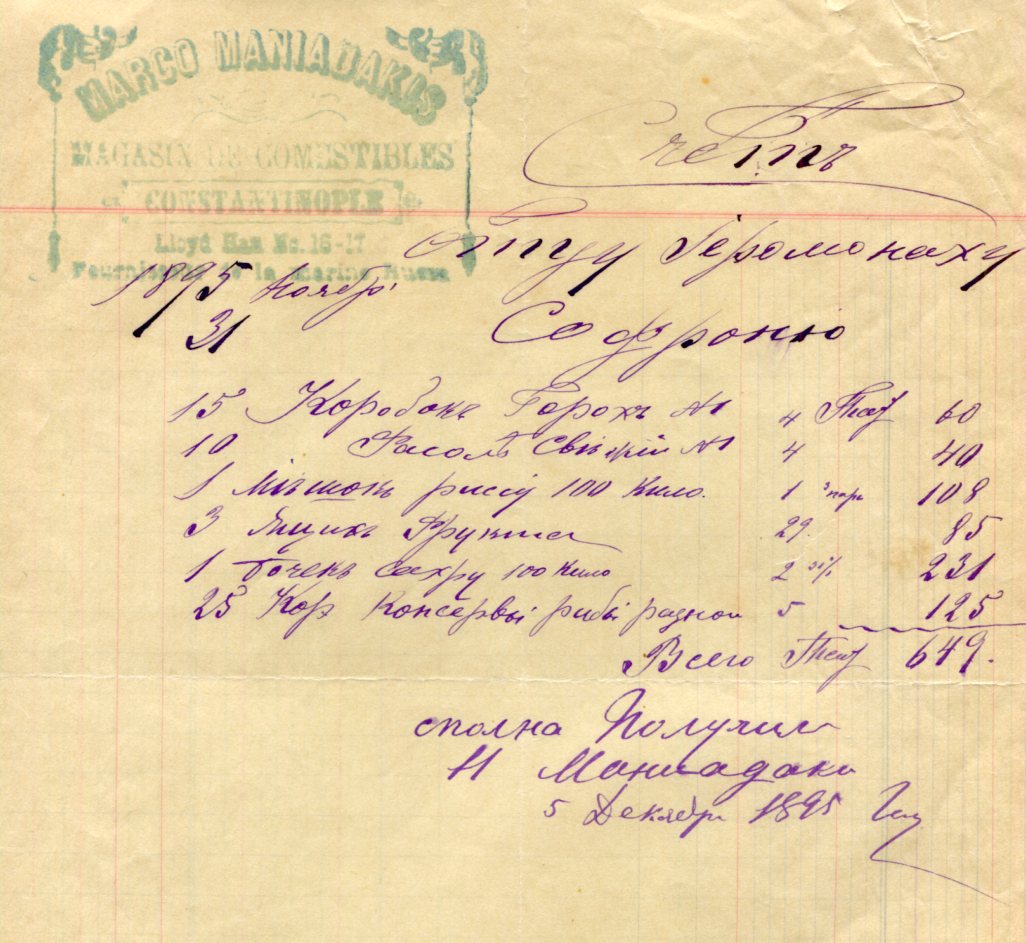 MARCO MANIADAKIS
MAGASIN DE COMESTIBLES
CONSTANTINOPLE
Lloyd Han No. 16-17
Fournisseur de la Marine Russe
Счетъ
Отцу Іеромонаху
1895 Ноябрі
31 Софронію
15 Коробокъ Горохъ №1 4 60
10 Фасолъ Свѣжій №1 4 40
1 Мѣшокъ риссу 100 Кило. 1 108
3 Ящикъ Фрукта 29. 85
1 бочекъ сахру 100 Кило 2 231
25 Кор Консервы рибы разной 5 125
Всего 649.
сполна Получил
Маниадаки
5 Декабри 1895